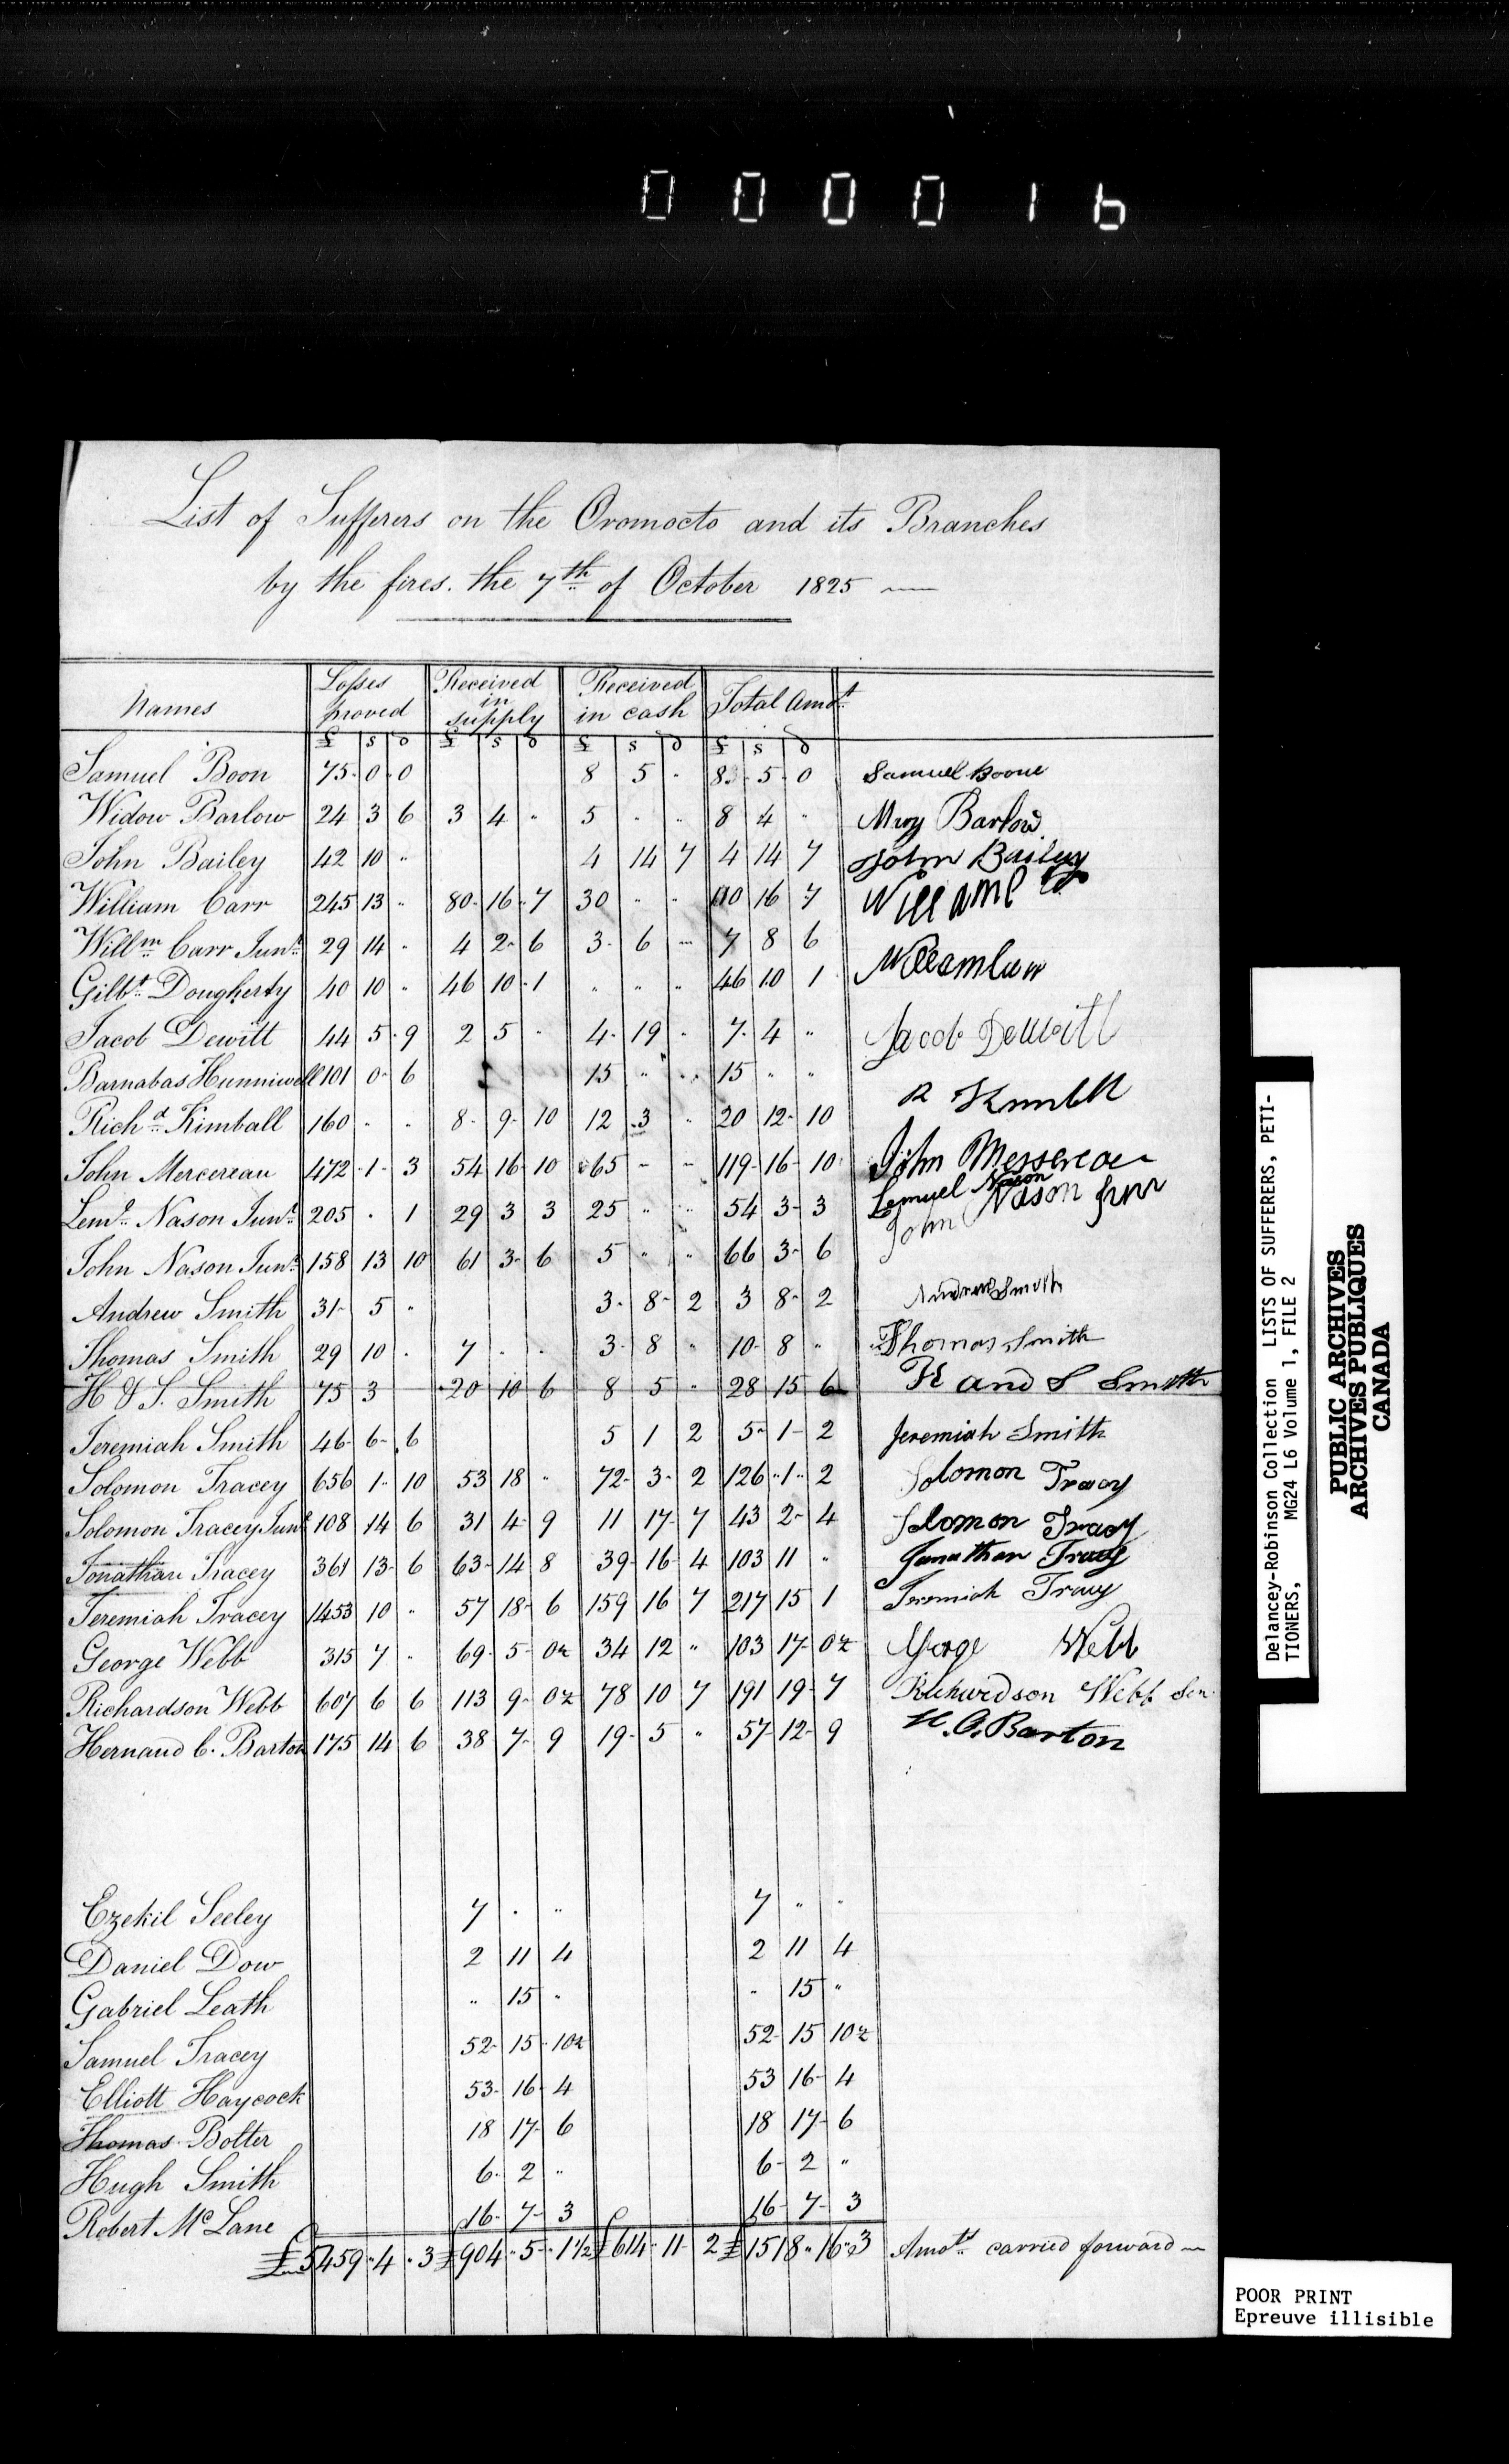 000016
List of Sufferers on the Oromocto and its Branches
by the fires. the 7th of October 1825
Names Losses proved Received in supply Received in cash Total Amot
£ s d £ s d £ s d £ s d
Samuel Boon 75 0 0 8 5 " 8 5 0 Samuel Boone
Widow Barlow 24 3 6 3 4 " 5 " " 8 4 " Barlow
John Bailey 42 10 " 4 14 7 4 14 7 John Bailey
William Carr 245 13 " 80 16 7 30 " " 110 16 7
Willm Carr Junr 29 14 " 4 2 6 3 6 " 7 8 6
Gilbt Dougherty 40 10 " 46 10 1 " " " 46 10 1
Jacob Dewitt 44 5 9 2 5 " 4 19 " 7 4 " Jacob DeWitt
Barnabas Hunniwell 101 0 6 15 " " 15 " "
Richd Kimball 160 " " 8 9 10 12 3 " 20 12 10 R
John Mercereau 472 1 3 54 16 10 65 " " 119 16 10 John Messereau
Leml Nason Junr 205 " 1 29 3 3 25 " " 54 3 3 Lemuel Nason
John Nason Junr 158 13 10 61 3 6 5 " " 66 3 6 John Nason Junr
Andrew Smith 31 5 " 3 8 2 3 8 2 Andrew Smith
Thomas Smith 29 10 " 7 " " 3 8 " 10 8 " Thomas Smith
H & S. Smith 75 3 20 10 6 8 5 " 28 15 6 H and S Smith
Jeremiah Smith 46 6 6 5 1 2 5 1 2 Jeremiah Smith
Solomon Tracey 656 1 10 53 18 " 72 3 2 126 1 2 Solomon Tracy
Solomon Tracey Junr 108 14 6 31 4 9 11 17 7 43 2 4 Solomon Tracy
Jonathan Tracey 361 13 6 63 14 8 39 16 4 103 11 " Jonathan Tracy
Jeremiah Tracey 1453 10 " 57 18 6 159 16 7 217 15 1 Jeremiah Tracy
George Webb 315 7 " 69 5 0½ 34 12 " 103 17 0½ George Webb
Richardson Webb 607 6 6 113 9 0½ 78 10 7 191 19 7 Richardson Webb Sen
Hernand C. Barton 175 14 6 38 7 9 19 5 " 57 12 9 H. C. Barton
Ezekil Seeley 7 " " 7 " "
Daniel Dow 2 11 4 2 11 4
Gabriel Leath " 15 " " 15 "
Samuel Tracey 52 15 10½ 52 15 10½
Elliott Haycock 53 16 4 53 16 4
Thomas Bolter 18 17 6 18 17 6
Hugh Smith 6 2 " 6 2 "
Robert Mc Lane 16 7 3 16 7 3
£5459 4 3 £904 5 1½ £614 11 2 £1518 16 3 Amots carried forward
Delancey-Robinson Collection LISTS OF SUFFERERS, PETI-
TIONERS, MG24 L6 Volume 1, FILE 2
PUBLIC ARCHIVES
ARCHIVES PUBLIQUES
CANADA
POOR PRINT
Epreuve illisible